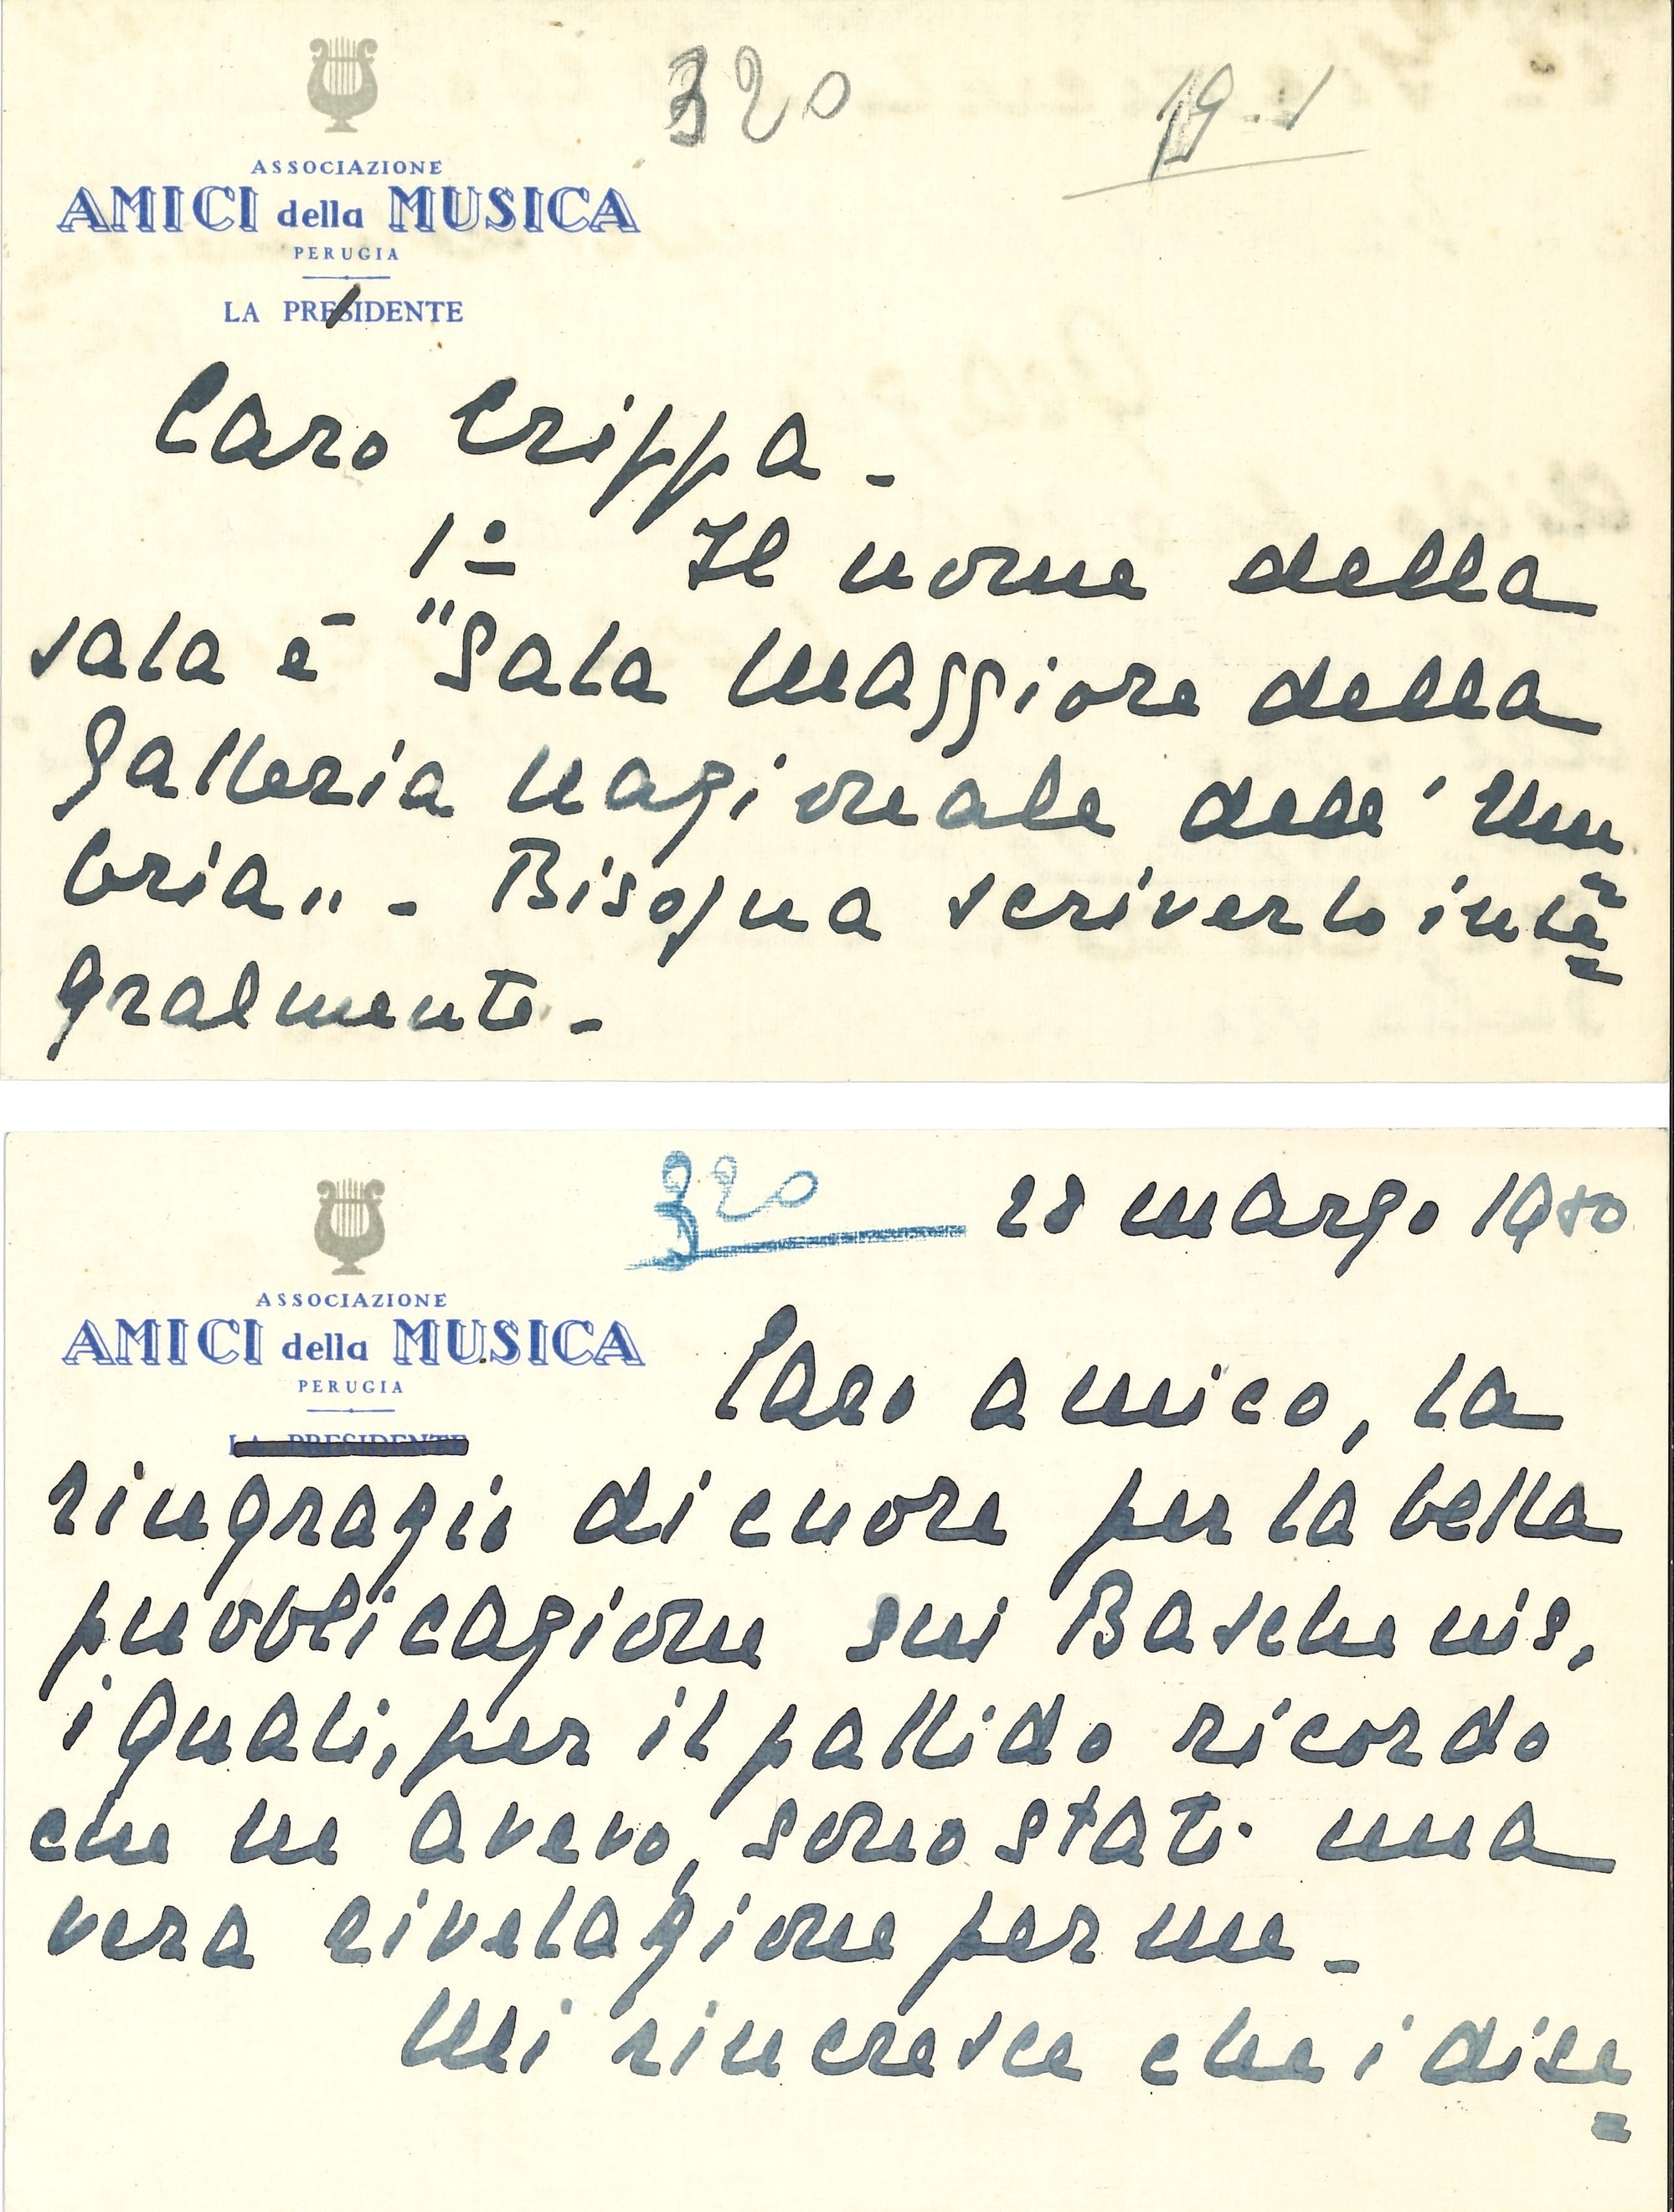 320
19.1
ASSOCIAZIONE
AMICI della MUSICA
PERUGIA
LA PRESIDENTE
Caro Crippa -
1º Il nome della
sala è "Sala Maggiore della
Galleria nazionale dell'Um=
bria" - Bisogna scriverlo inte=
gralmente -
320
28 marzo 1980
ASSOCIAZIONE
AMICI della MUSICA
PERUGIA
LA PRESIDENTE
Caro amico, la
ringrazio di cuore per la bella
pubblicazione sui Baschenis,
i quali, per il pallido ricordo
che ne avevo, sono stati una
vera rivelazione per me -
Mi rincresce che i dise=